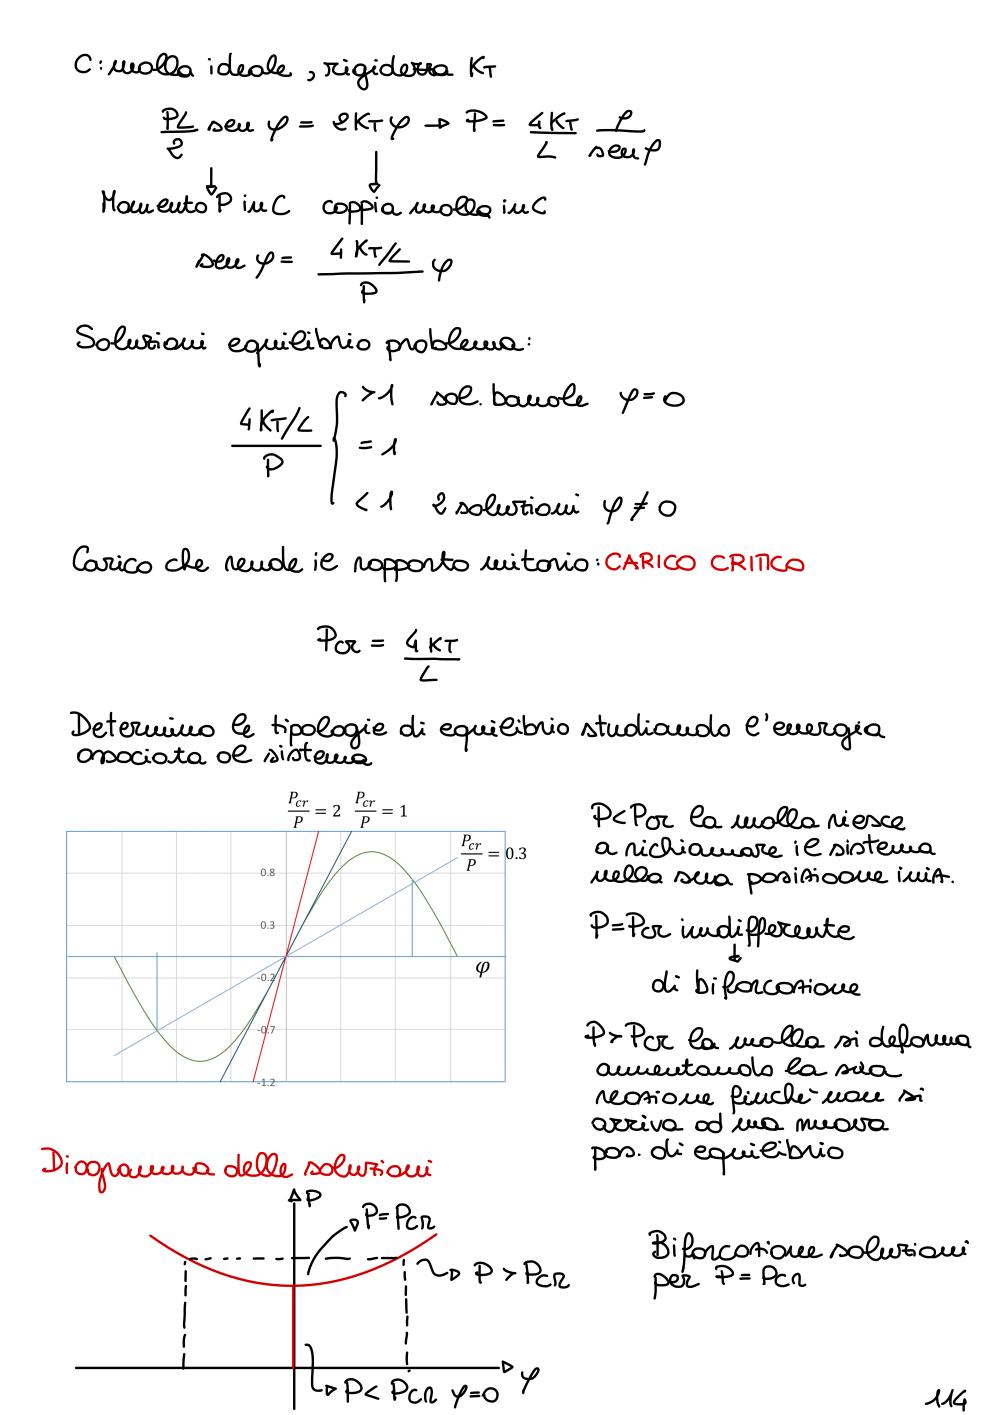 C: molla ideale, rigidezza KT
PL/2 sen φ = 2KT φ → P = 4KT/L φ/senφ
Momento P in C coppia molla in C
sen φ = (4KT/L)/P φ
Soluzioni equilibrio problema:
(4KT/L)/P { >1 sol. banale φ=0
= 1
< 1 2 soluzioni φ ≠ 0
Carico che rende il rapporto unitario: CARICO CRITICO
Pcr = 4KT/L
Determino le tipologie di equilibrio studiando l'energia
associata al sistema
Pcr/P = 2 Pcr/P = 1
Pcr/P = 0.3
0.8
0.3
-0.2
-0.7
-1.2
φ
P<Pcr la molla riesce
a richiamare il sistema
nella sua posizione iniz.
P=Pcr indifferente
↓
di biforcazione
P>Pcr la molla si deforma
aumentando la sua
reazione finchè non si
arriva ad una nuova
pos. di equilibrio
Diagramma delle soluzioni
P
P=PCR
P > PCR
P< PCR φ=0
φ
Biforcazione soluzioni
per P = PCR
114